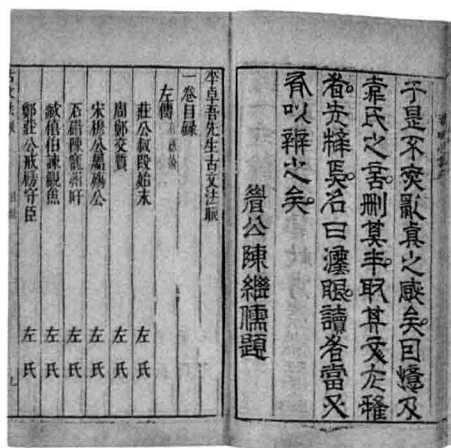 于是不亂真之感矣曰憶及
氏之刪其半取其尤雅
者焉名曰灋眼讀者當又
有以辨之矣
眉公陳繼儒題
李卓吾先生古文法眼
一卷目錄
左傳
莊公叔段始末 左氏
周鄭交質 左氏
宋穆公屬殤公 左氏
石碏諫寵州吁 左氏
臧僖伯諫觀魚 左氏
鄭莊公戒飭守臣 左氏